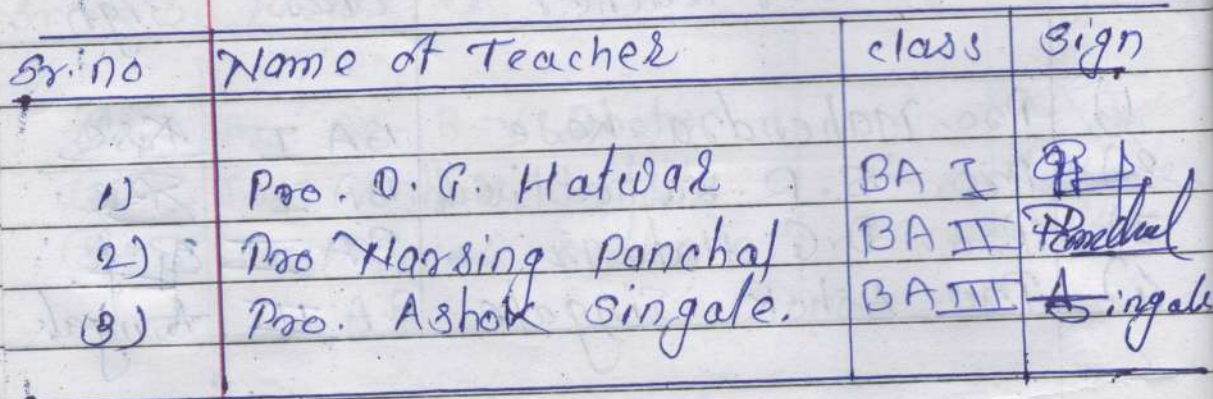 Sr.no Name of Teacher class Sign
1) Pro. D. G. Hatwar BA I
2) Pro Narsing Panchal BA II Panchal
3) Pro. Ashok Singale. BA III Aingale